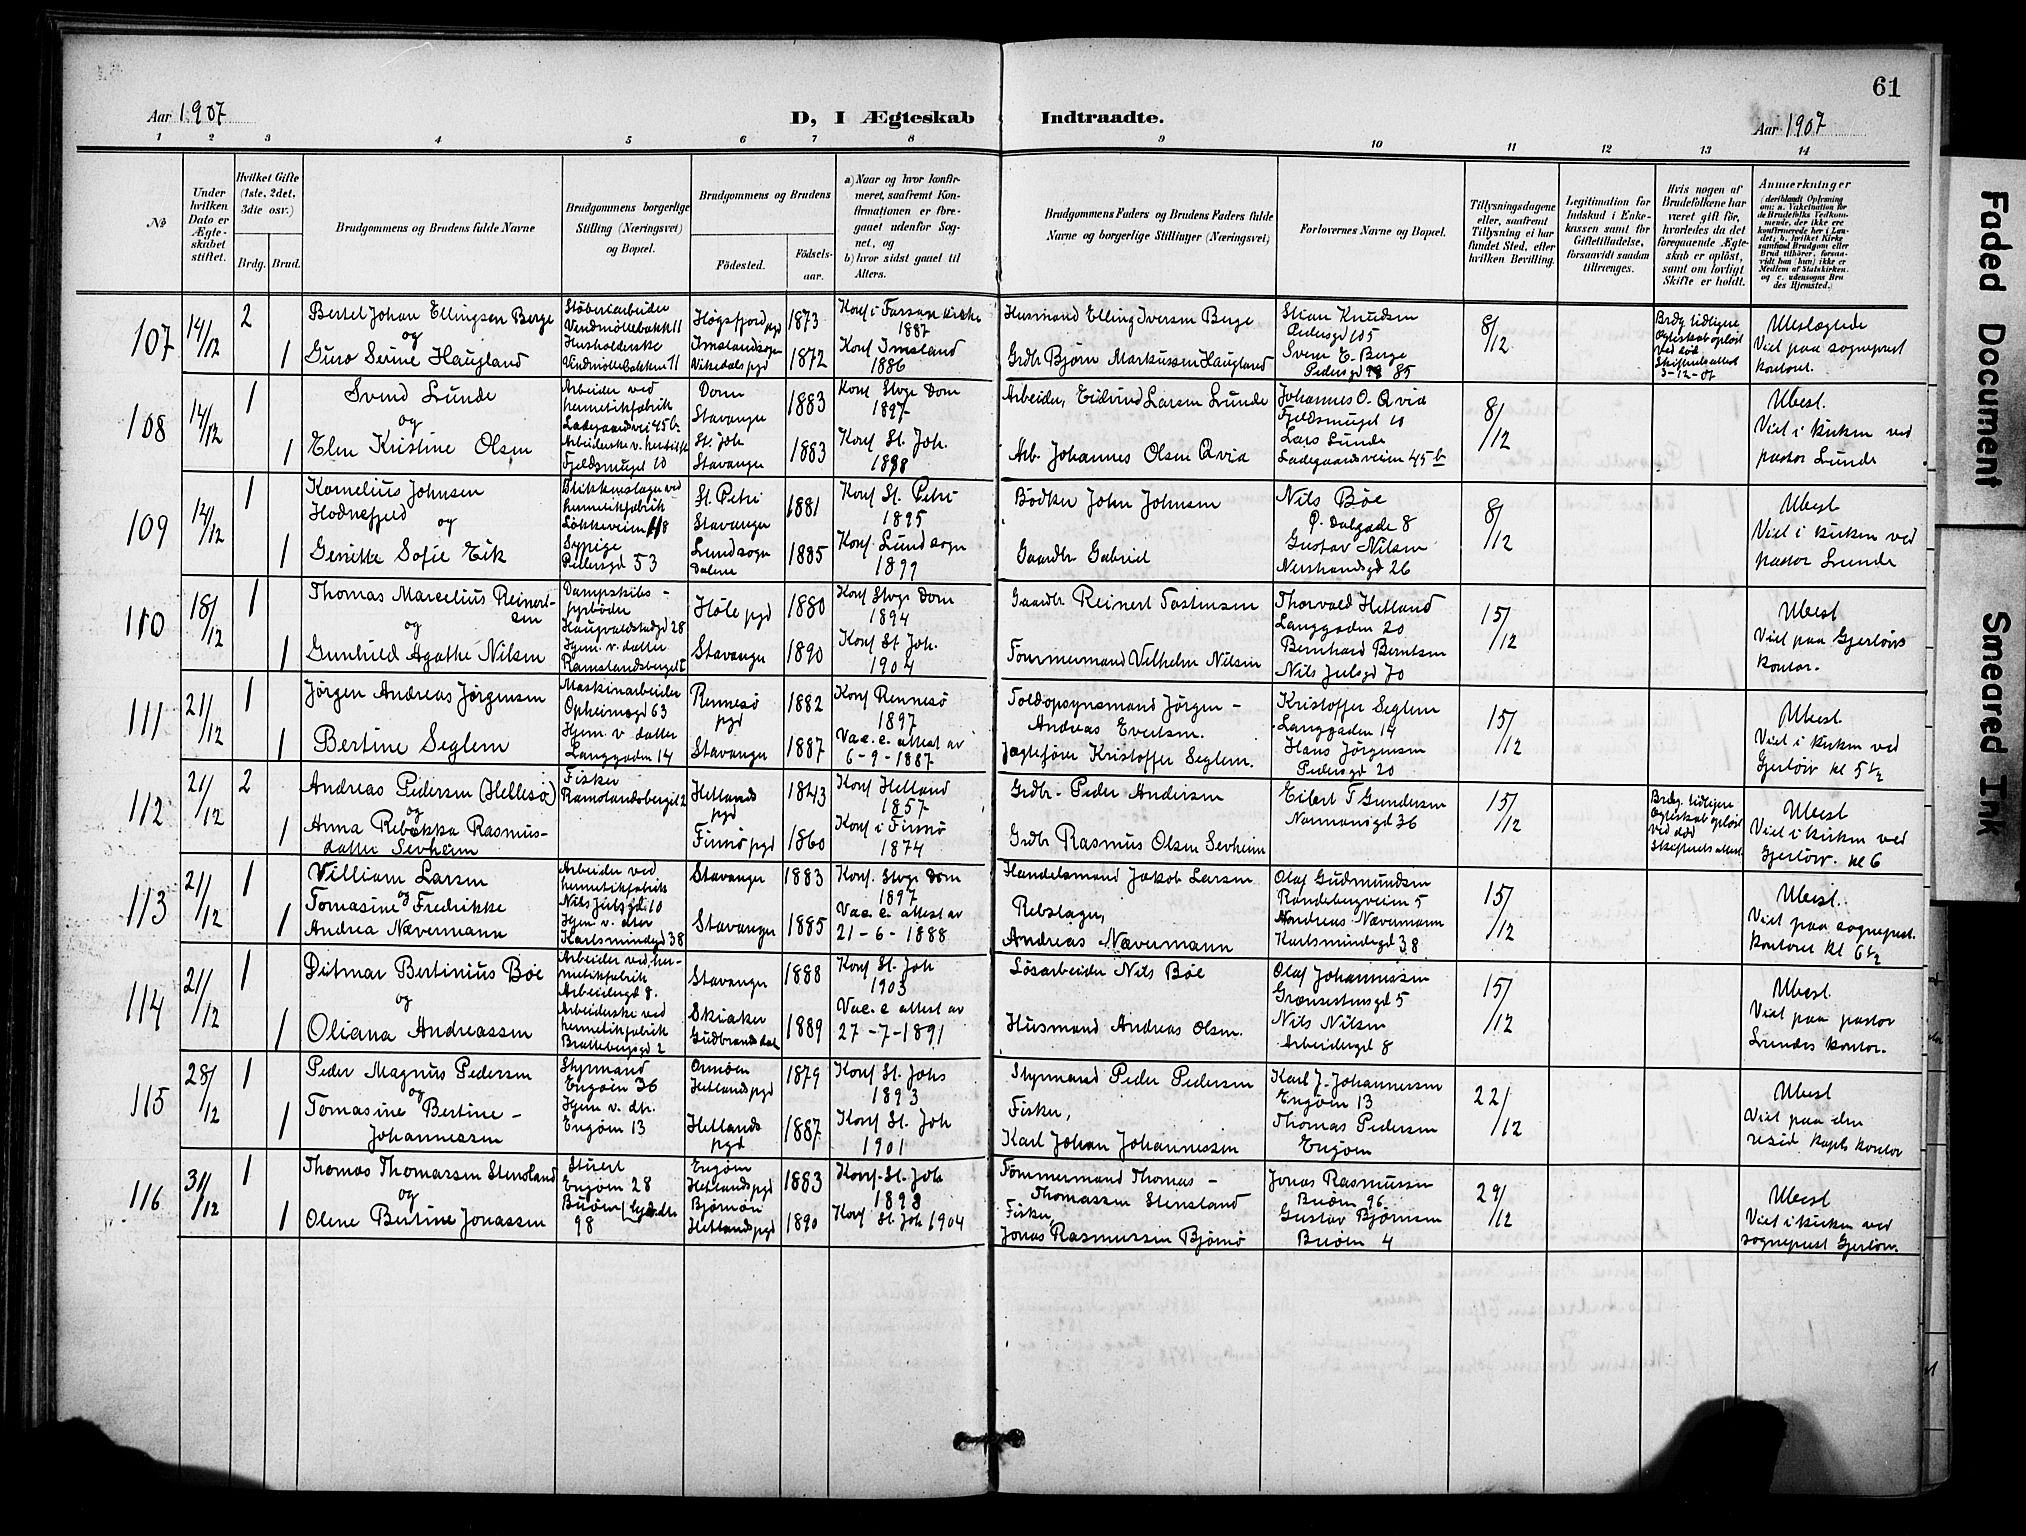 61
Aar 1907
D, I Ægteskab Indtraadte.
Aar 1907
1 2 3 4 5 6 7 8 9 10 11 12 13 14
№
Under hvilken Dato er Ægteskabet stiftet.
Hvilket Gifte (1ste, 2det, 3die osv.)
Brdg. Brud.
Brudgommens og Brudens fulde Navne
Brudgommens borgerlige Stilling (Næringsvei) og Bopæl.
Brudgommens og Brudens
Födested. Födselsaar.
a) Naar og hvor konfirmeret, saafremt Konfirmationen er foregaaet udenfor Sognet, og
b) hvor sidst gaaet til Alters.
Brudgommens Faders og Brudens Faders fulde Navne og borgerlige Stillinger (Næringsvei)
Forlovernes Navne og Bopæl.
Tillysningsdagene eller, saafremt Tillysning ei har fundet Sted, efter hvilken Bevilling.
Legitimation for Indskud i Enkekassen samt for Giftetilladelse, forsaavidt saadan tiltrænges.
Hvis nogen af Brudefolkene har været gift för, hvorledes da det foregaaende Ægteskab er oplöst, samt om lovligt Skifte er holdt.
Anmærkninger
107 14/12 2 Bertel Johan Ellingsen Berge
og
1 Guro Serine Haugland
Støberiarbeider
Vindmøllebakk 11
Husholderske
Vindmøllebakken 11
Høgsfjord pgd 1873
Imslandsogn
Vikedals pgd 1872
Konf i Fossan kirke
1887
Konf Imsland
1886
Husmand Elling Iversen Berge
Grdbr Bjørn Markussen Haugland
Stian Knudsen
Pedersgd 105
Sven E. Berge
Pedersgd 85
8/12
Brdg tidligere
Ægteskab opløst
ved død.
Skifteretsattest
3-12-07
Ubeslægtede
Viet paa sogneprest
kontoret.
108 14/12 1 Svend Lunde
og
1 Elen Kristine Olsen
Arbeider ved
hermetikfabrik
Ladegaardsvei 45b
Arbeiderske v. hermetikf
Fjeldsmuget 10
Dom
Stavanger 1883
St. Joh
Stavanger 1883
Konf Stvgr Dom
1897
Konf St. Joh.
1898
Arbeider, Eidvind Larsen Lunde
Arb. Johannes Olsen Qvia
Johannes O. Qvia
Fjeldsmuget 10
Lars Lunde
Ladegaardsveien 45b
8/12
Ubesl.
Viet i kirken ved
pastor Lunde
109 14/12 1 Kornelius Johnsen
Hodnefjeld og
1 Gesikke Sofie Eik
Blikkenslager ved
hermetikfabrik
Løkkeveien 118
Sypige
Pedersgd 53
St. Petri
Stavanger 1881
Lundsogn
Dalene 1885
Konf St. Petri
1895
Konf. Lund sogn
1899
Bødker John Johnsen
Gaardbr Gabriel
Nils Bøe
Ø. Dalgade 8
Gustav Nilsen
Nerstrandsgd 26
8/12
Ubesl
Viet i kirken ved
pastor Lunde
110 18/12 1 Thomas Marcelius Reinertsen
og
1 Gunhild Agathe Nilsen
Dampskibsfyrbøder
Haugvaldstadgd 28
Hjem. v. datter
Høle pgd 1880
Stavanger 1890
Konf Stvgr Dom
1894
Konf St. Joh.
1904
Gaardbr Reinert Tostensen
Tømmermand Vilhelm Nilsen
Thorvald Hetland
Langgaden 20
Bernhard Berntsen
Nils Juelsgd 70
15/12
Ubesl
Viet paa Gjerløvs
kontor.
111 21/12 1 Jørgen Andreas Jørgensen
1 Bertine Seglem
Maskinarbeider
Opheimsgd 63
Hjem v datter
Langgaden 14
Rennesø
pgd 1882
Stavanger 1887
Konf Rennesø
1897
Vac. c. attest av
6-9-1887
Toldopsynsmand Jørgen -
Andreas Evertsen.
Jagtefører Kristoffer Seglem.
Kristoffer Seglem
Langgaden 14
Hans Jørgensen
Pedersgd 20
15/12
Ubesl.
Viet i kirken ved
Gjerløv kl 5 1/2
112 21/12 2 Andreas Pedersen (Hellesø)
og
1 Anna Rebekka Rasmusdatter Sevheim
Fisker
Ramslandsberget 2
Hetlands
pgd 1843
Finnø pgd 1860
Konf Hetland
1857
Konf i Finnø
1874
Grdbr. Peder Andersen
Grdbr Rasmus Olsen Sevheim
Eilert T Gundersen
Normansgd 36
15/12
Brdg. tidligere
Ægteskab opløst
ved død
Skifterets attest
Ubesl
Viet i kirken ved
Gjerløv. kl 6
113 21/12 1 Villiam Larsen
og
1 Tomasine Fredrikke
Andrea Nævermann
Arbeider ved
hermetikfabrik
Nils Juelsgd 10
Hjem v. dtr
Karlsmindegd 38
Stavanger 1883
Stavanger 1885
Konf. Stvgr Dom
1897
Vac. c. attest av
21-6-1888
Handelsmand Jakob Larsen
Rebslager,
Andreas Nævermann
Olaf Gudmundsen
Randebergveien 5
Andreas Nævermann
Karlsmindegd 38
15/12
Ubesl.
Viet paa sognepest.
kontoret kl 6 1/2
114 21/12 1 Ditmar Bertinius Bøe
og
1 Oliana Andreassen
Arbeider ved hermetikfabrik
Arbeidergd 8.
Arbeiderske ved
hermetikfabrik
Brattebergsgd 2
Stavanger 1888
Skiaker
Gudbrandsdal 1889
Konf St. Joh
1903
Vac. c attest av
27-7-1891
Løsarbeider Nils Bøe
Husmand Andreas Olsen.
Olaf Johannessen
Grænsestensgd 5
Nils Nilsen
Arbeidergd 8
15/12
Ubesl.
Viet paa pastor
Lundes kontor.
115 28/12 1 Peder Magnus Pedersen
og
1 Tomasine Bertine -
Johannessen
Styrmand
Engøen 36
Hjem v. dtr.
Engøen 13
Ormøen
Hetlands pgd 1879
Hetlands
pgd 1887
Konf St. Johs
1893
Konf St. Joh
1901
Styrmand Peder Pedersen
Fisker,
Karl Johan Johannessen
Karl J. Johannessen
Engøen 13
Thomas Pedersen
Engøen
22/12
Ubesl
Viet paa den
resid. kapls kontor
116 31/12 1 Thomas Thomassen Stensland
og
1 Olene Bertine Jonassen
Stuert
Engøen 28
Buøen
98
Engøen
Hetlands pgd 1883
Bjørnøi
Hetlands pgd 1890
Konf. St. Joh
1898
Konf St. Joh 1904
Tømmermand Thomas -
Thomassen Stensland
Fisker,
Jonas Rasmussen Bjørnø
Jonas Rasmussen
Buøen 96
Gustav Bjørnsen
Buøen 4
29/12
Ubesl
Viet i kirken ved
sogneprest Gjerløw.
Faded Document
Smeared Ink